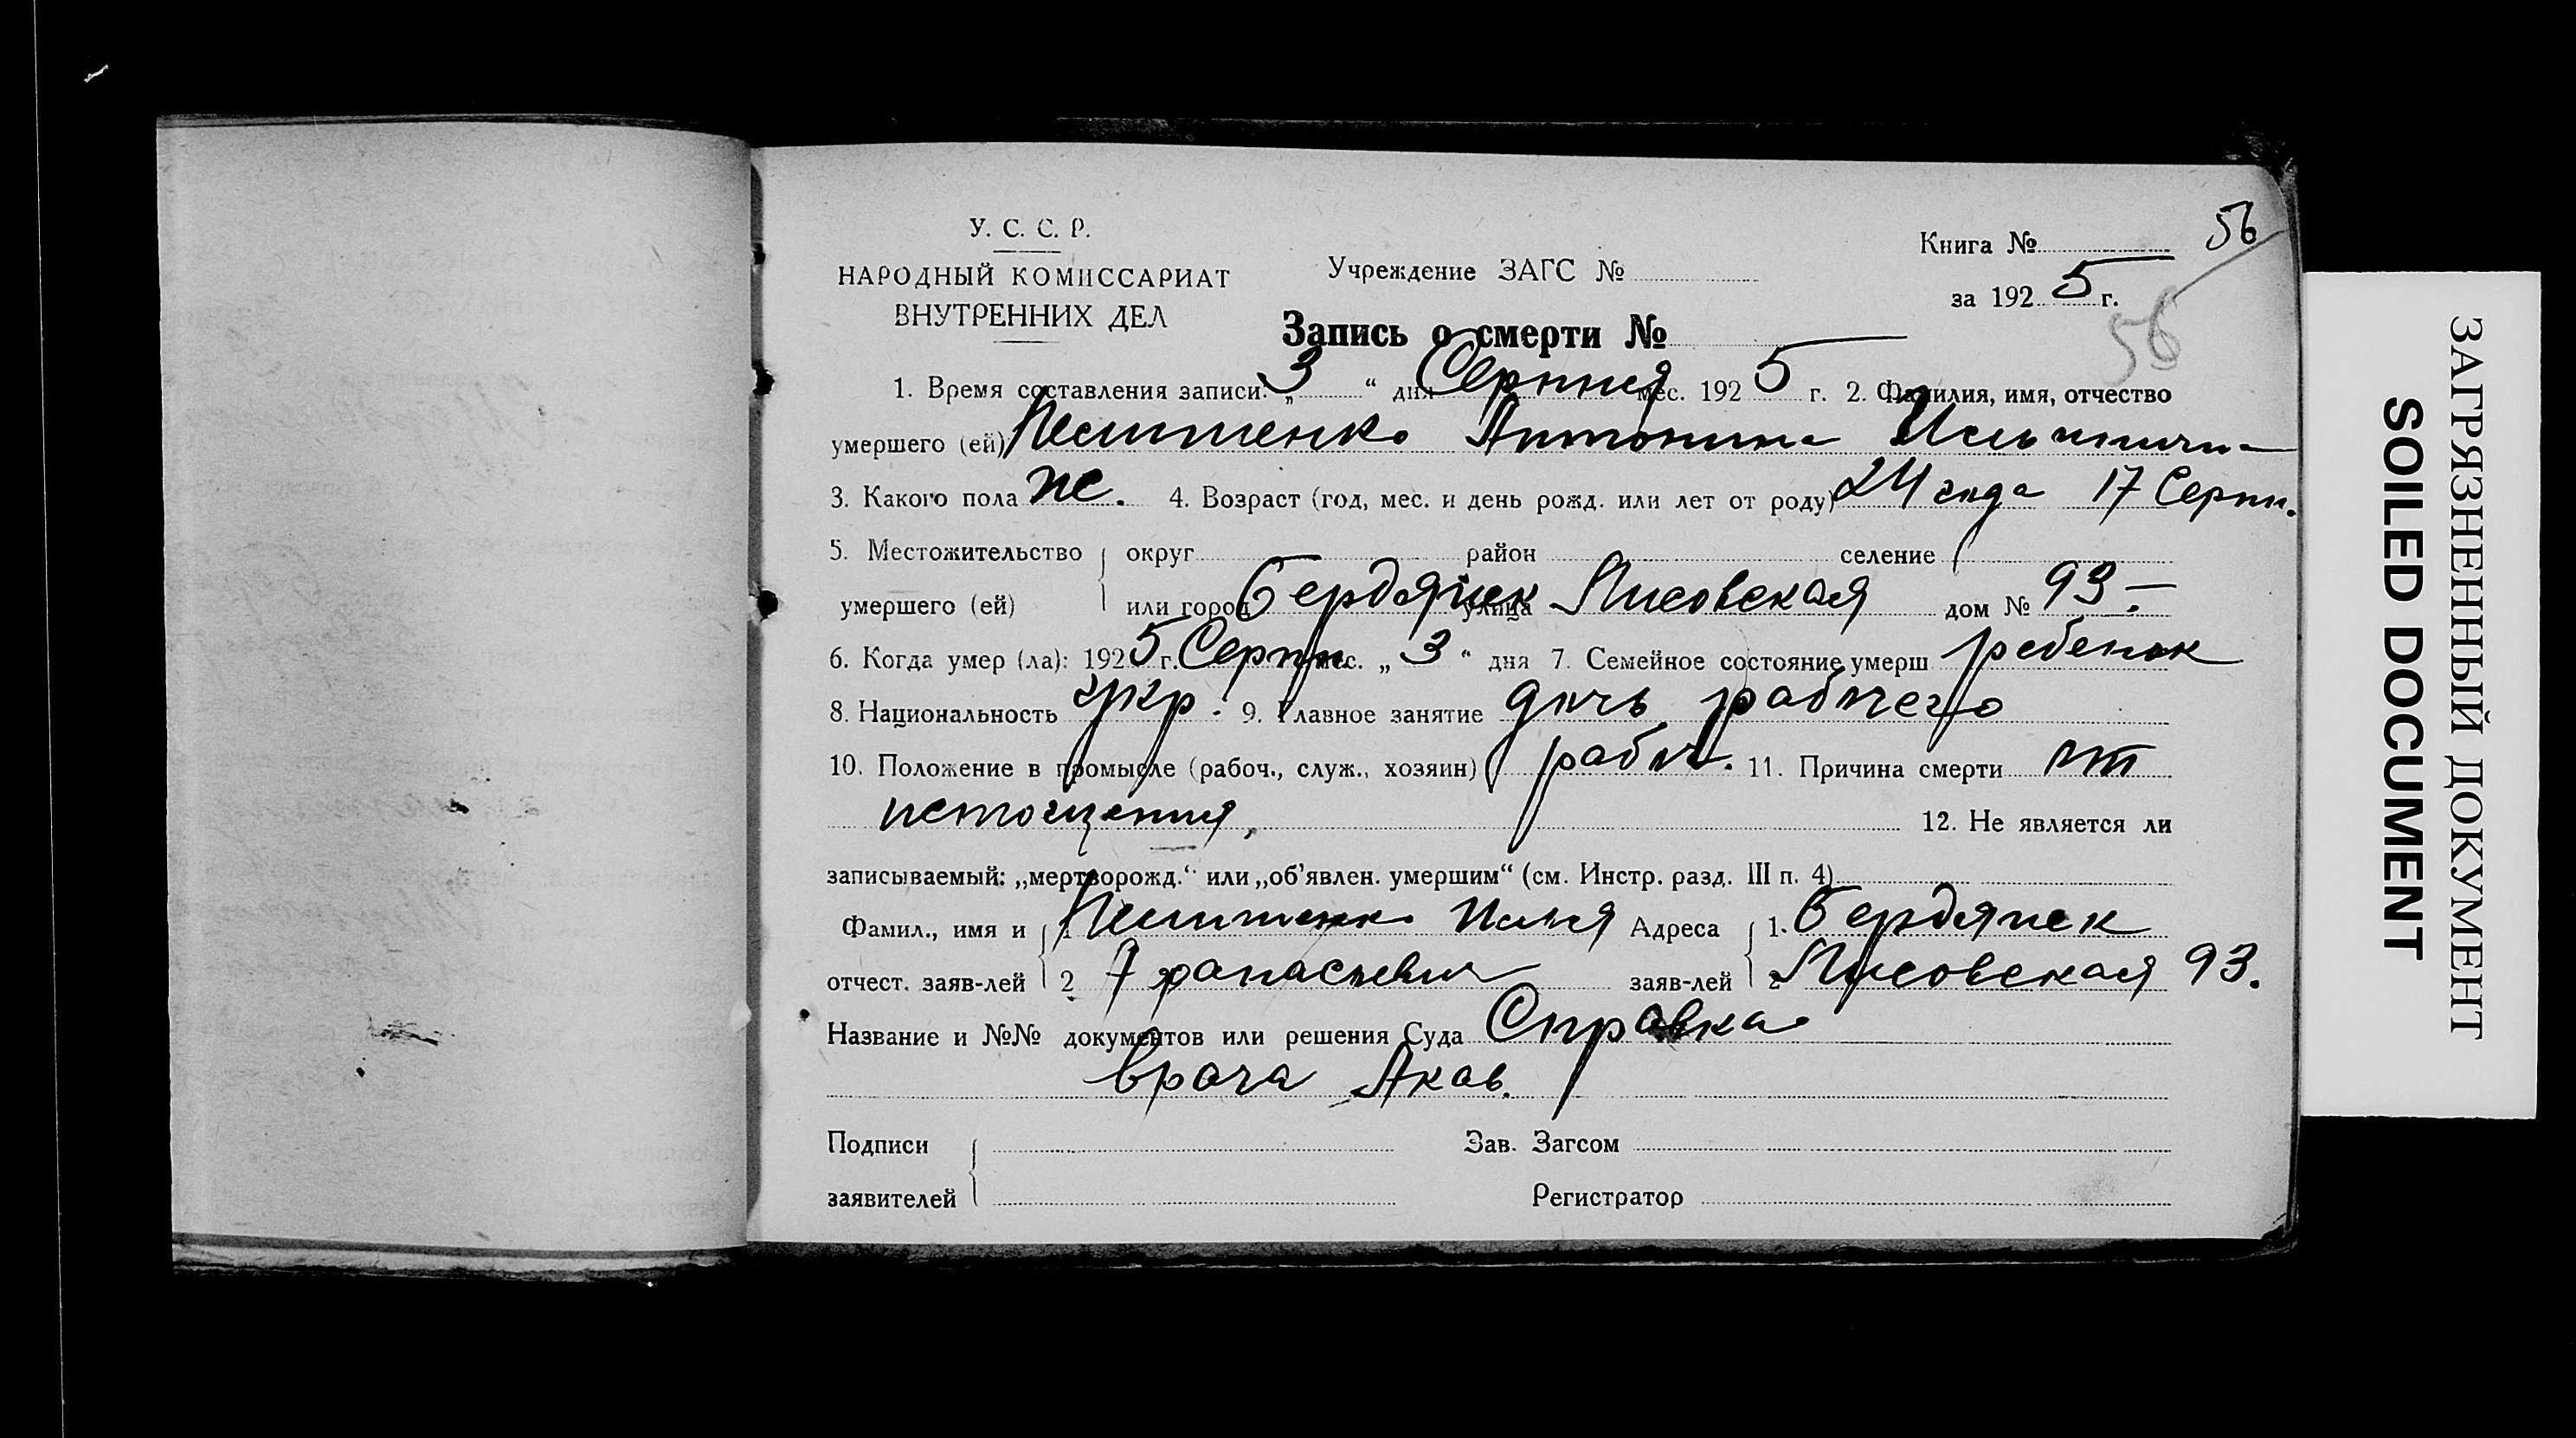 56
У. С. С. Р.
НАРОДНЫЙ КОМИССАРИАТ
ВНУТРЕННИХ ДЕЛ
Учреждение ЗАГС №
Книга №
за 1925 г.
56
Запись о смерти №
1. Время составления записи: „3“ дня Серпня мес. 1925 г. 2. Фамилия, имя, отчество
умершего (ей) Антонина
3. Какого пола ж. 4. Возраст (год, мес. и день рожд. или лет от роду) 24 года 17 Серпн.
5. Местожительство округ район селение
умершего (ей) или город Бердянск улица Лисовская дом № 93.-
6. Когда умер (ла): 1925 г. Серпн мес. „3“ дня 7. Семейное состояние умерш ребенок
8. Национальность укр. 9. Главное занятие дочь рабочего
10. Положение в промысле (рабоч., служ., хозяин) рабоч. 11. Причина смерти от
истощения,
12. Не является ли
записываемый: „мертворожд.“ или „об'явлен. умершим“ (см. Инстр. разд. III п. 4)
Фамил., имя и 1 Илья Адреса 1. Бердянск
отчест. заяв-лей 2 Афанасьевич заяв-лей 2 Лисовская 93.
Название и №№ документов или решения Суда Справка
врача Акав.
Подписи Зав. Загсом
заявителей Регистратор
ЗАГРЯЗНЕННЫЙ ДОКУМЕНТ
SOILED DOCUMENT